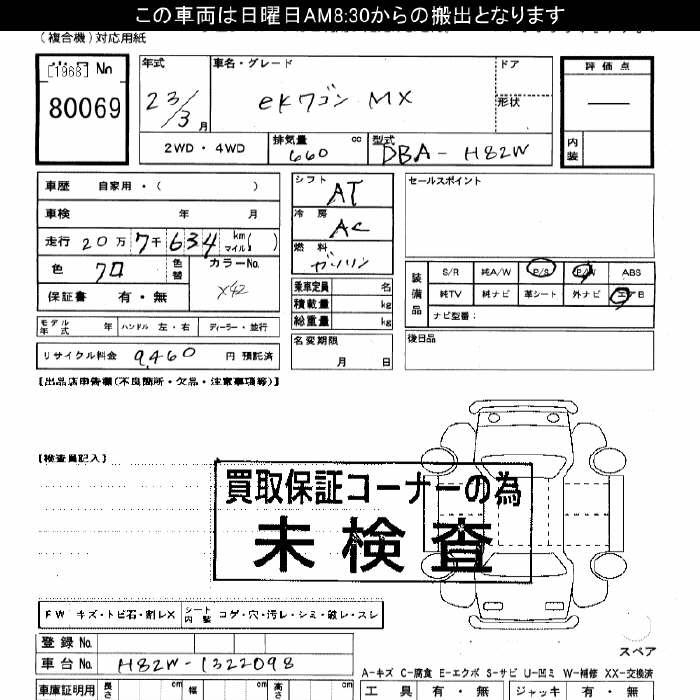 この車両は日曜日AM8:30からの搬出となります
(複合機)対応用紙
[1968] No
80069
年式 23/3 月
車名・グレード eKワゴン MX
ドア
形状
評価点
―
内装
2WD・4WD
排気量 660 cc
型式 DBA-H82W
車歴 自家用・( )
車検 年 月
走行 20万7千634 km マイル( )
色 クロ
色替
カラーNo. X42
保証書 有・無
モデル年式 年 ハンドル 左・右 ディーラー・並行
リサイクル料金 9,460 円 預託済
シフト AT
冷房 AC
燃料 ガソリン
乗車定員 名
積載量 kg
総重量 kg
名変期限
月 日
セールスポイント
装備品
S/R 純A/W P/S P/W ABS
純TV 純ナビ 革シート 外ナビ エアB
ナビ型番:
後日品
【出品店申告欄(不良箇所・欠品・注意事項等)】
【検査員記入】
買取保証コーナーの為
未検査
FW キズ・トビ石・割レX シート内装 コゲ・穴・汚レ・シミ・破レ・スレ
登録No.
車台No. H82W-1322098
車庫証明用 長さ cm 幅 cm 高さ cm
スペア
A-キズ C-腐食 E-エクボ S-サビ U-凹ミ W-補修 XX-交換済
工具 有・無 ジャッキ 有・無